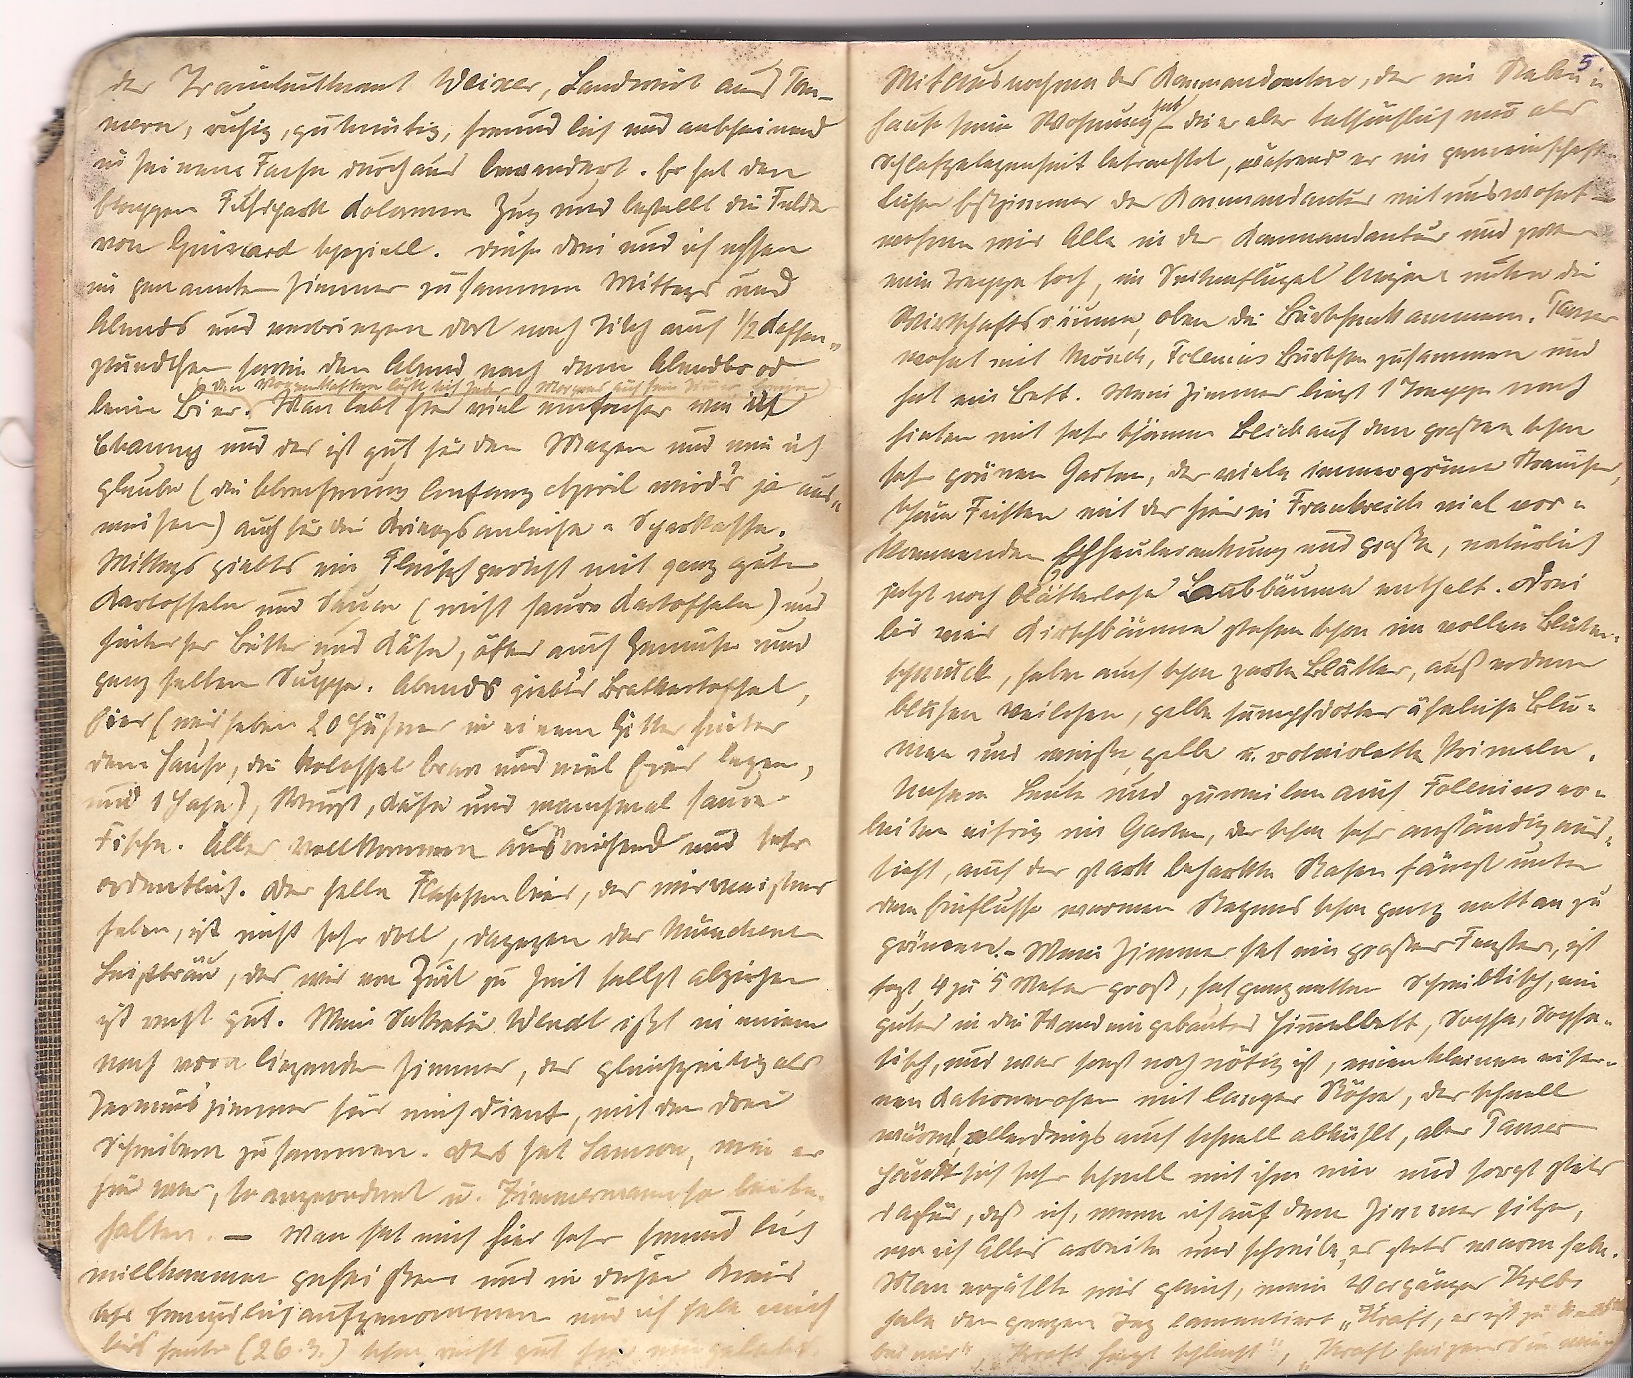 der Trainleutnant Weixer, Landwirt aus Pom-
mern, ruhig, gutmütig, freundlich und anscheinend
in seinem Fache durchaus bewandert. Er hat den
Fuhrpark Kolonnen Zug und bestellt die Felder
von Guiscard speziell. Diese drei und ich essen
im genannten Zimmer zusammen Mittags und
Abends und verbringen dort nach Tisch auf 1/2 Kaffee-
stündchen sowie den Abend nach dem Abendbrod
beim Bier. Man lebt hier viel einfacher wie in
Chauny und das ist gut für den Magen und wie ich
glaube (die Abrechnung Anfang April wird's ja aus-
weisen) auch für die Kriegsanleihe = Sparkasse.
Mittags giebts ein Fleischgericht mit ganz guten
Kartoffeln und Sauce (meist saure Kartoffeln) und
hinterher Butter und Käse, öfter auch Gemüse und
ganz selten Suppe. Abends giebts Bratkartoffel,
Eier (wir haben 20 Hühner in einem Gitter hinter
dem Hause, die kolossal brav und viel Eier legen,
und 1 Hahn), Wurst, Käse und manchmal saure
Fische. Alles vollkommen ausreichend und sehr
ordentlich. Das helle Flaschenbier, das wir meistens
haben, ist nicht sehr doll, dagegen das Münchener
Leistbräu, das wir von Zeit zu Zeit selbst abziehen
ist recht gut. Mein Sekretär Wendt ißt in einem
nach vorn liegenden Zimmer, das gleichzeitig als
Terminszimmer für mich dient, mit den drei
Schreibern zusammen. Das hat Samson, wie er
hier war, so angeordnet u. Zimmermann so beibe-
halten. — Man hat mich hier sehr freundlich
willkommen geheißen und in diesen Kreis
sehr freundlich aufgenommen und ich habe mich
bis heute (26.3.) schon recht gut hier eingelebt.
5
Mit Ausnahme des Kommandanten, der im Neben-
hause seine Wohnung hat, die er aber tatsächlich nur als
Schlafgelegenheit betrachtet, während er im gemeinschaft-
lichen Eßzimmer der Kommandantur mit uns wohnt
wohnen wir Alle in der Kommandantur und zwar
eine Treppe hoch, im Seitenflügel liegen unten die
Wirtschaftsräume, oben die Burschenkammern. Panser
wohnt mit Mösch, Follenius Burschen zusammen und
hat ein Bett. Mein Zimmer liegt 1 Treppe nach
hinten mit sehr schönem Blick auf den großen schon
sehr grünen Garten, der viele immergrüne Sträucher,
schöne Fichten mit der hier in Frankreich viel vor-
kommenden Epheuberankung und große, natürlich
jetzt noch blätterlose Laubbäume enthält. Drei
bis vier Kirschbäume stehen schon im vollen Blüten-
schmuck, haben auch schon zarte Blätter, außerdem
blühen Veilchen, gelbe sumpfdotter ähnliche Blu-
men und weiße, gelbe u. rotviolette Primeln.
Unsere Leute und zuweilen auch Follenius ar-
beiten eifrig im Garten, der schon sehr anständig aus-
sieht, auch der stark beharkte Rasen fängt unter
dem Einflusse warmen Regens schon ganz nett an zu
grünen. - Mein Zimmer hat ein großes Fenster, ist
fast 4 zu 5 Meter groß, hat ganz netten Schreibtisch, ein
gutes in die Wand eingebautes Himmelbett, Sopha, Sopha-
tisch, und was sonst noch nötig ist, einen kleinen eiser-
nen Kanonenofen mit langer Röhre, der schnell
wärmt, allerdings auch schnell abkühlt, aber Panser
sehr schnell mit ihm ein und sorgt stets
dafür, daß ich, wenn ich auf dem Zimmer sitze,
wo ich Alles arbeite und schreibe, es stets warm habe.
Man erzählte mir gleich, mein Vorgänger Krebs
habe den ganzen Tag lamentiert „Kraft, es ist zu kalt
bei mir", „Kraft heizt schlecht", „Kraft heizen Sie ein